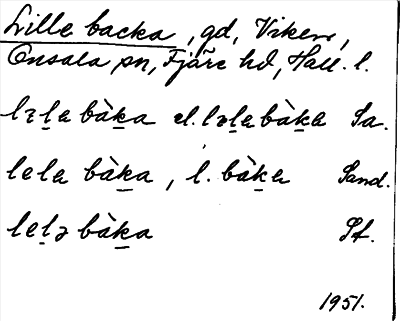 Lille backa, gd, Viken,
Onsala sn, Fjäre hd, Hall. l.
lɪla bàka el. lɪla bàka Sa.
lela bàka, l. bàka Sand.
lelə bàka Sf.
1951.